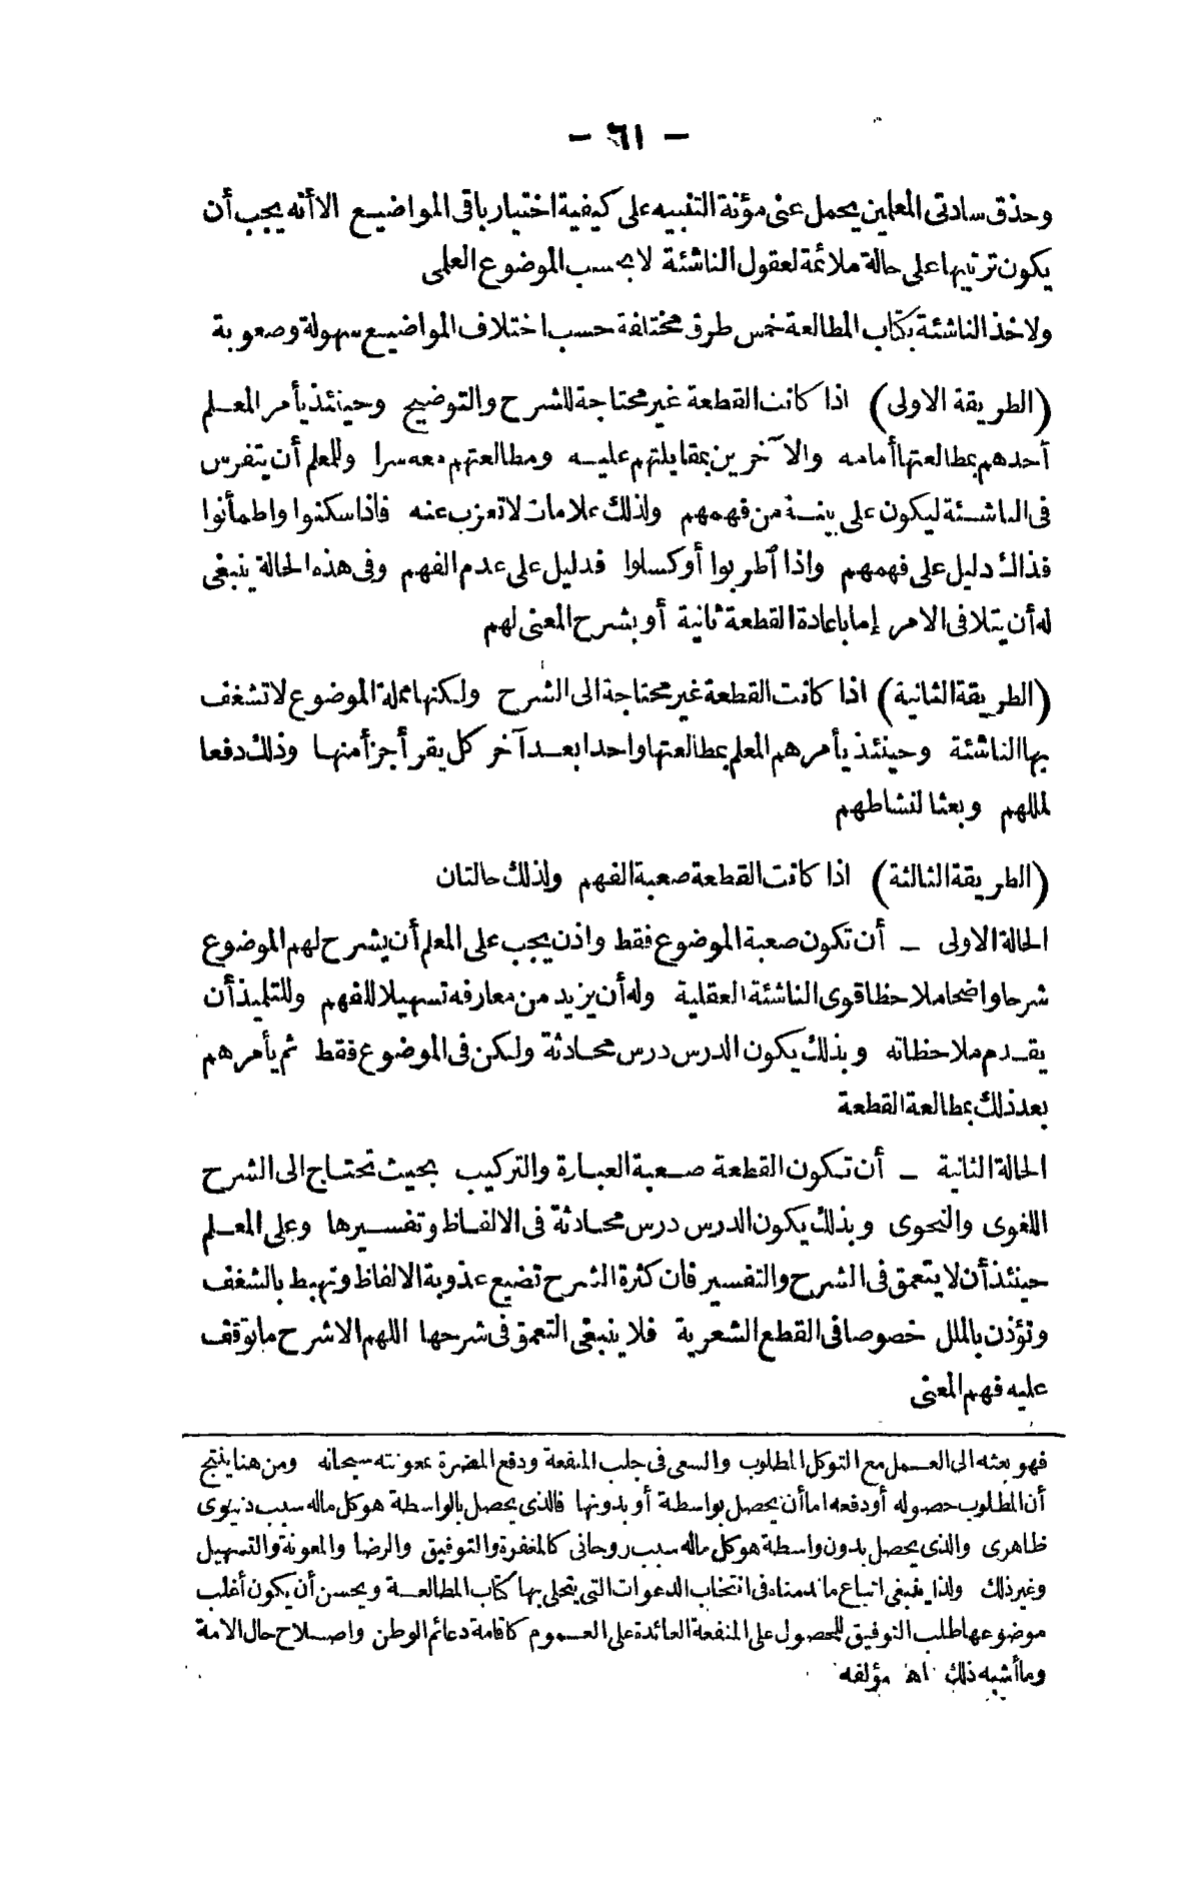 — ٦١ —
وحذق سادتى المعلمين يحمل عنى مؤنة التنبيه على كيفية اختيار باقى المواضيع الا أنه يجب أن
يكون ترتيبها على حالة ملائمة لعقول الناشئة لا بحسب الموضوع العلمى
ولاخذ الناشئة بكتاب المطالعة خمس طرق مختلفة حسب اختلاف المواضيع سهولة وصعوبة
(الطريقة الاولى) اذا كانت القطعة غير محتاجة للشرح والتوضيح وحينئذ يأمر المعلم
أحدهم بمطالعتها أمامه والآخرين بمقابلتهم عليه ومطالعتهم معه سرا وللمعلم أن يتفرس
فى الناشئة ليكون على بينة من فهمهم ولذلك علامات لا تعزب عنه فاذا سكنوا واطمأنوا
فذاك دليل على فهمهم واذا اطربوا أو كسلوا فدليل على عدم الفهم وفى هذه الحالة ينبغى
له أن يتلافى الامر إما باعادة القطعة ثانية أو بشرح المعنى لهم
(الطريقة الثانية) اذا كانت القطعة غير محتاجة الى الشرح ولكنها مملة الموضوع لا تشغف
بها الناشئة وحينئذ يأمرهم المعلم بمطالعتها واحدا بعد آخر كل يقرأ جزأ منها وذلك دفعا
لمللهم وبعثا لنشاطهم
(الطريقة الثالثة) اذا كانت القطعة صعبة الفهم ولذلك حالتان
الحالة الاولى — أن تكون صعبة الموضوع فقط واذن يجب على المعلم أن يشرح لهم الموضوع
شرحا واضحا ملاحظا قوى الناشئة العقلية وله أن يزيد من معارفه تسهيلا للفهم وللتلميذ أن
يقدم ملاحظاته وبذلك يكون الدرس درس محادثة ولكن فى الموضوع فقط ثم يأمرهم
بعد ذلك بمطالعة القطعة
الحالة الثانية — أن تكون القطعة صعبة العبارة والتركيب بحيث تحتاج الى الشرح
اللغوى والنحوى وبذلك يكون الدرس درس محادثة فى الالفاظ وتفسيرها وعلى المعلم
حينئذ أن لا يتعمق فى الشرح والتفسير فان كثرة الشرح تضيع عذوبة الالفاظ وتهبط بالشغف
وتؤذن بالملل خصوصا فى القطع الشعرية فلا ينبغى التعمق فى شرحها اللهم الا شرح ما يتوقف
عليه فهم المعنى
فهو بعثه الى العمل مع التوكل المطلوب والسعى فى جلب المنفعة ودفع المضرة بمعونته سبحانه ومن هنا ينتج
أن المطلوب حصوله أو دفعه اما أن يحصل بواسطة أو بدونها فالذى يحصل بالواسطة هو كل ماله سبب دنيوى
ظاهرى والذى يحصل بدون واسطة هو كل ماله سبب روحانى كالمغفرة والتوفيق والرضا والمعونة والتسهيل
وغير ذلك ولذا ينبغى اتباع ما قدمناه فى انتخاب الدعوات التى يتحلى بها كتاب المطالعة ويحسن أن يكون أغلب
موضوعها طلب التوفيق للحصول على المنفعة العائدة على العموم كاقامة دعائم الوطن واصلاح حال الامة
وما أشبه ذلك اه مؤلفه